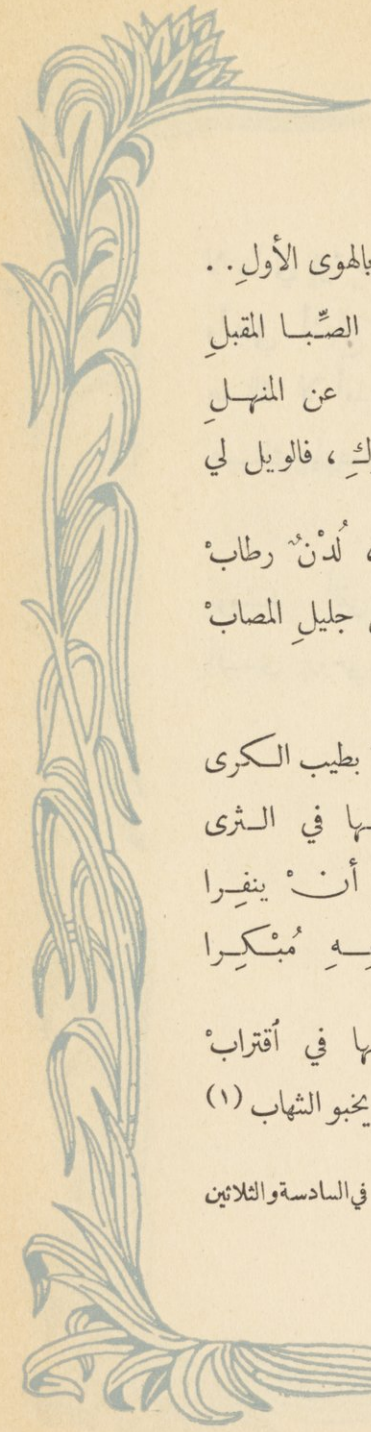 بالهوى الأولِ . .
الصِّبا المقبلِ
عن المنهلِ
فالويل لي
لُدْنٌ رطابْ
جليلِ المصابْ
بطيب الكرى
في الثرى
أنْ ينفِرا
مُبْكِرا
في ٱقترابْ
يخبو الشهاب (١)
في السادسة والثلاثين